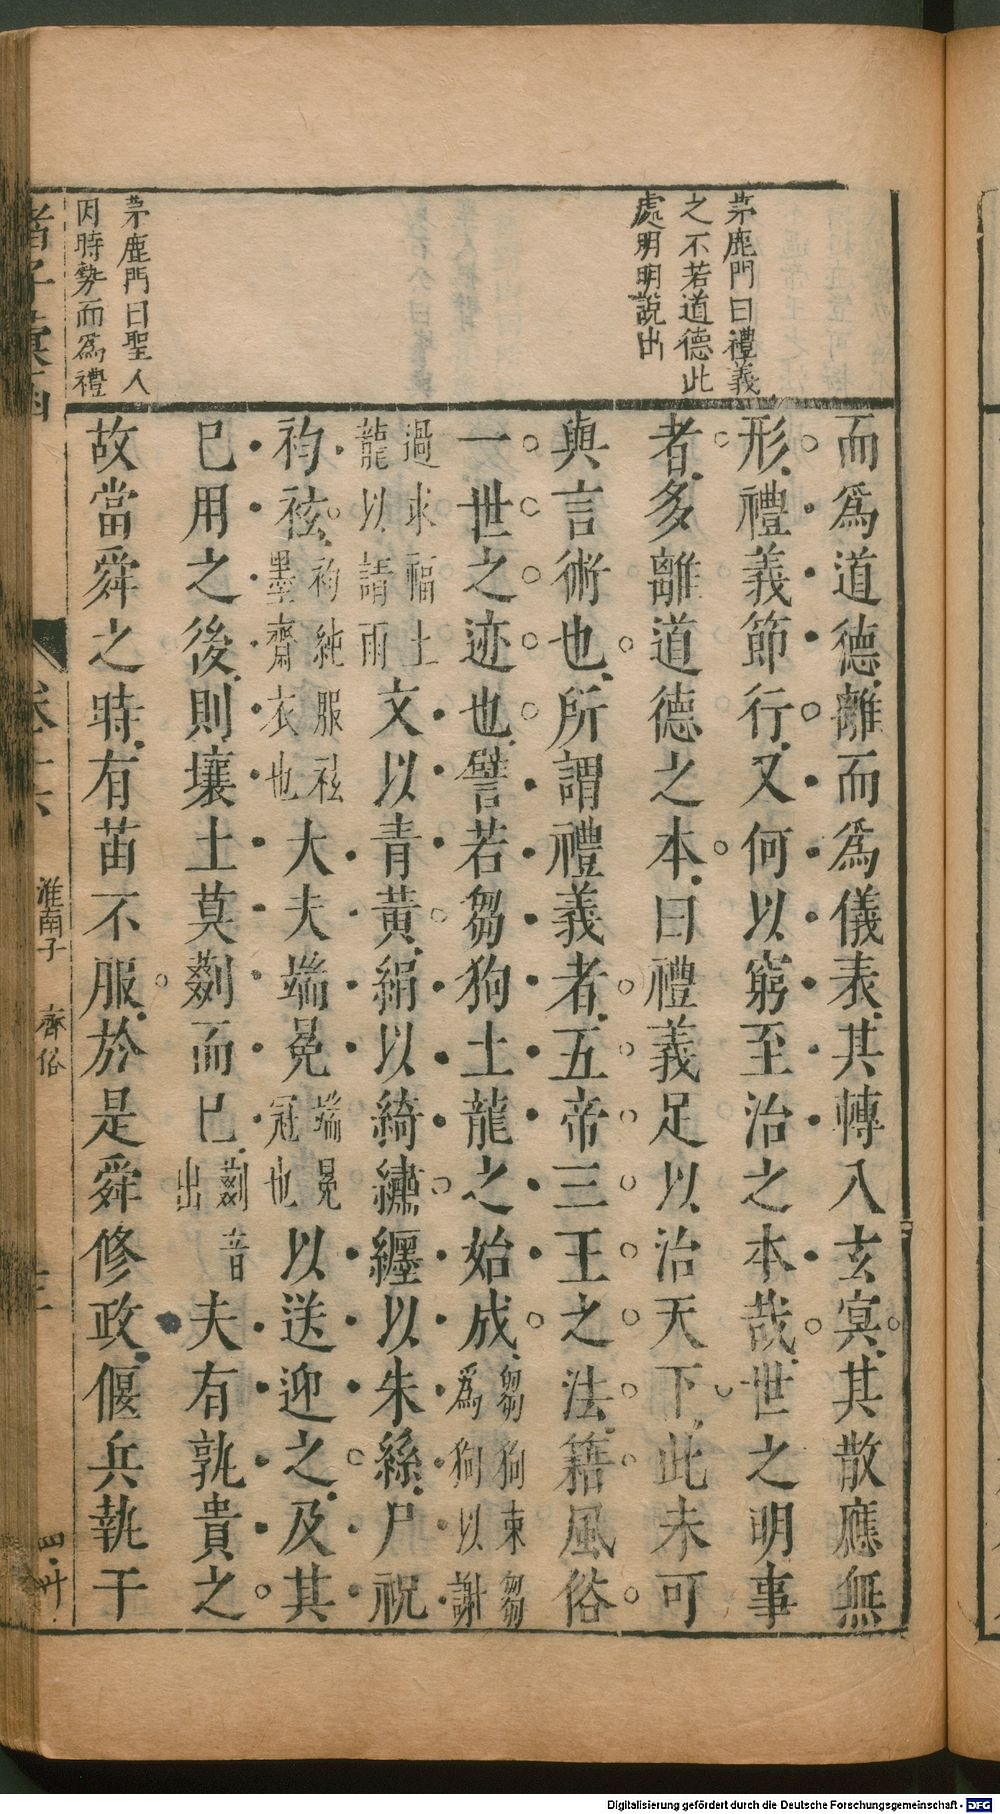 茅鹿門曰禮義
之不若道德此
處明明說出
茅鹿門曰聖人
因時勢而爲禮
而爲道德離而爲儀表其轉入玄㝠其散應無
形禮義節行又何以窮至治之本哉世之明事
者多離道德之本曰禮義足以治天下此未可
與言術也所謂禮義者五帝三王之法籍風俗
一世之迹也譬若芻狗土龍之始成芻狗束芻爲狗以謝
過求福土龍以請雨文以青黃絹以綺繡纏以朱絲尸祝
袀袨袀純服袨墨齋衣也大夫端冕端冕冠也以送迎之及其
已用之後則壤土莫㔉而已㔉音出夫有孰貴之
故當舜之時有苗不服於是舜修政偃兵執干
淮南子 齊俗
Digitalisierung gefördert durch die Deutsche Forschungsgemeinschaft - DFG